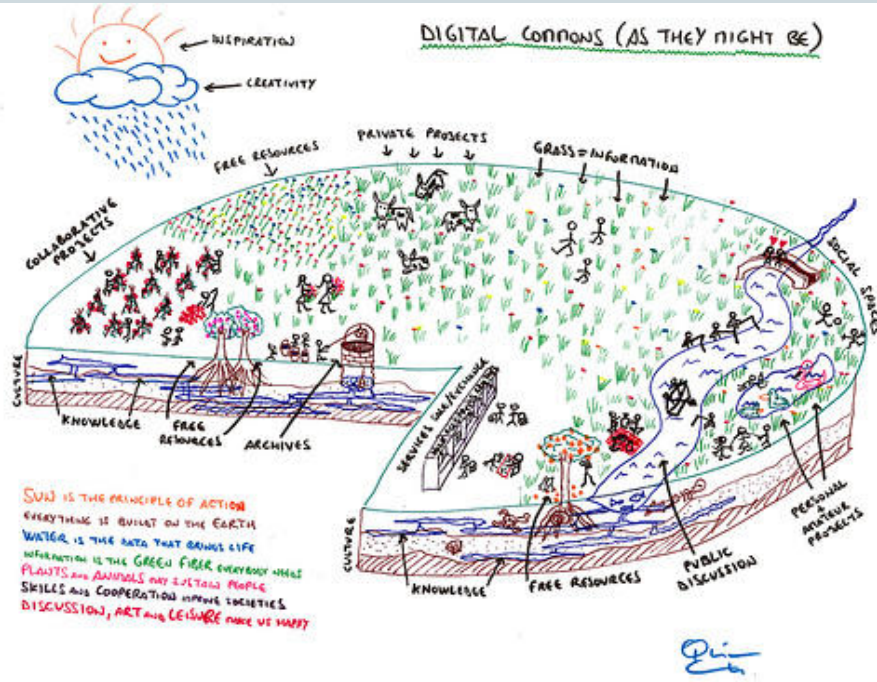 DIGITAL COMMONS (AS THEY MIGHT BE)
INSPIRATION
CREATIVITY
FREE RESOURCES
PRIVATE PROJECTS
GRASS = INFORMATION
COLLABORATIVE
PROJECTS
SOCIAL SPACES
CULTURE
KNOWLEDGE
FREE
RESOURCES
ARCHIVES
SERVICES
EXCHANGE
CULTURE
KNOWLEDGE
FREE RESOURCES
PUBLIC
DISCUSSION
PERSONAL
+
AMATEUR
PROJECTS
SUN IS THE PRINCIPLE OF ACTION
EVERYTHING IS BUILT ON THE EARTH
WATER IS THE DATA THAT BRINGS LIFE
INFORMATION IS THE GREEN FIBER EVERYBODY NEEDS
PLANTS AND ANIMALS MAY SUSTAIN PEOPLE
SKILLS AND COOPERATION IMPROVE SOCIETIES
DISCUSSION, ART AND LEISURE MAKE US HAPPY